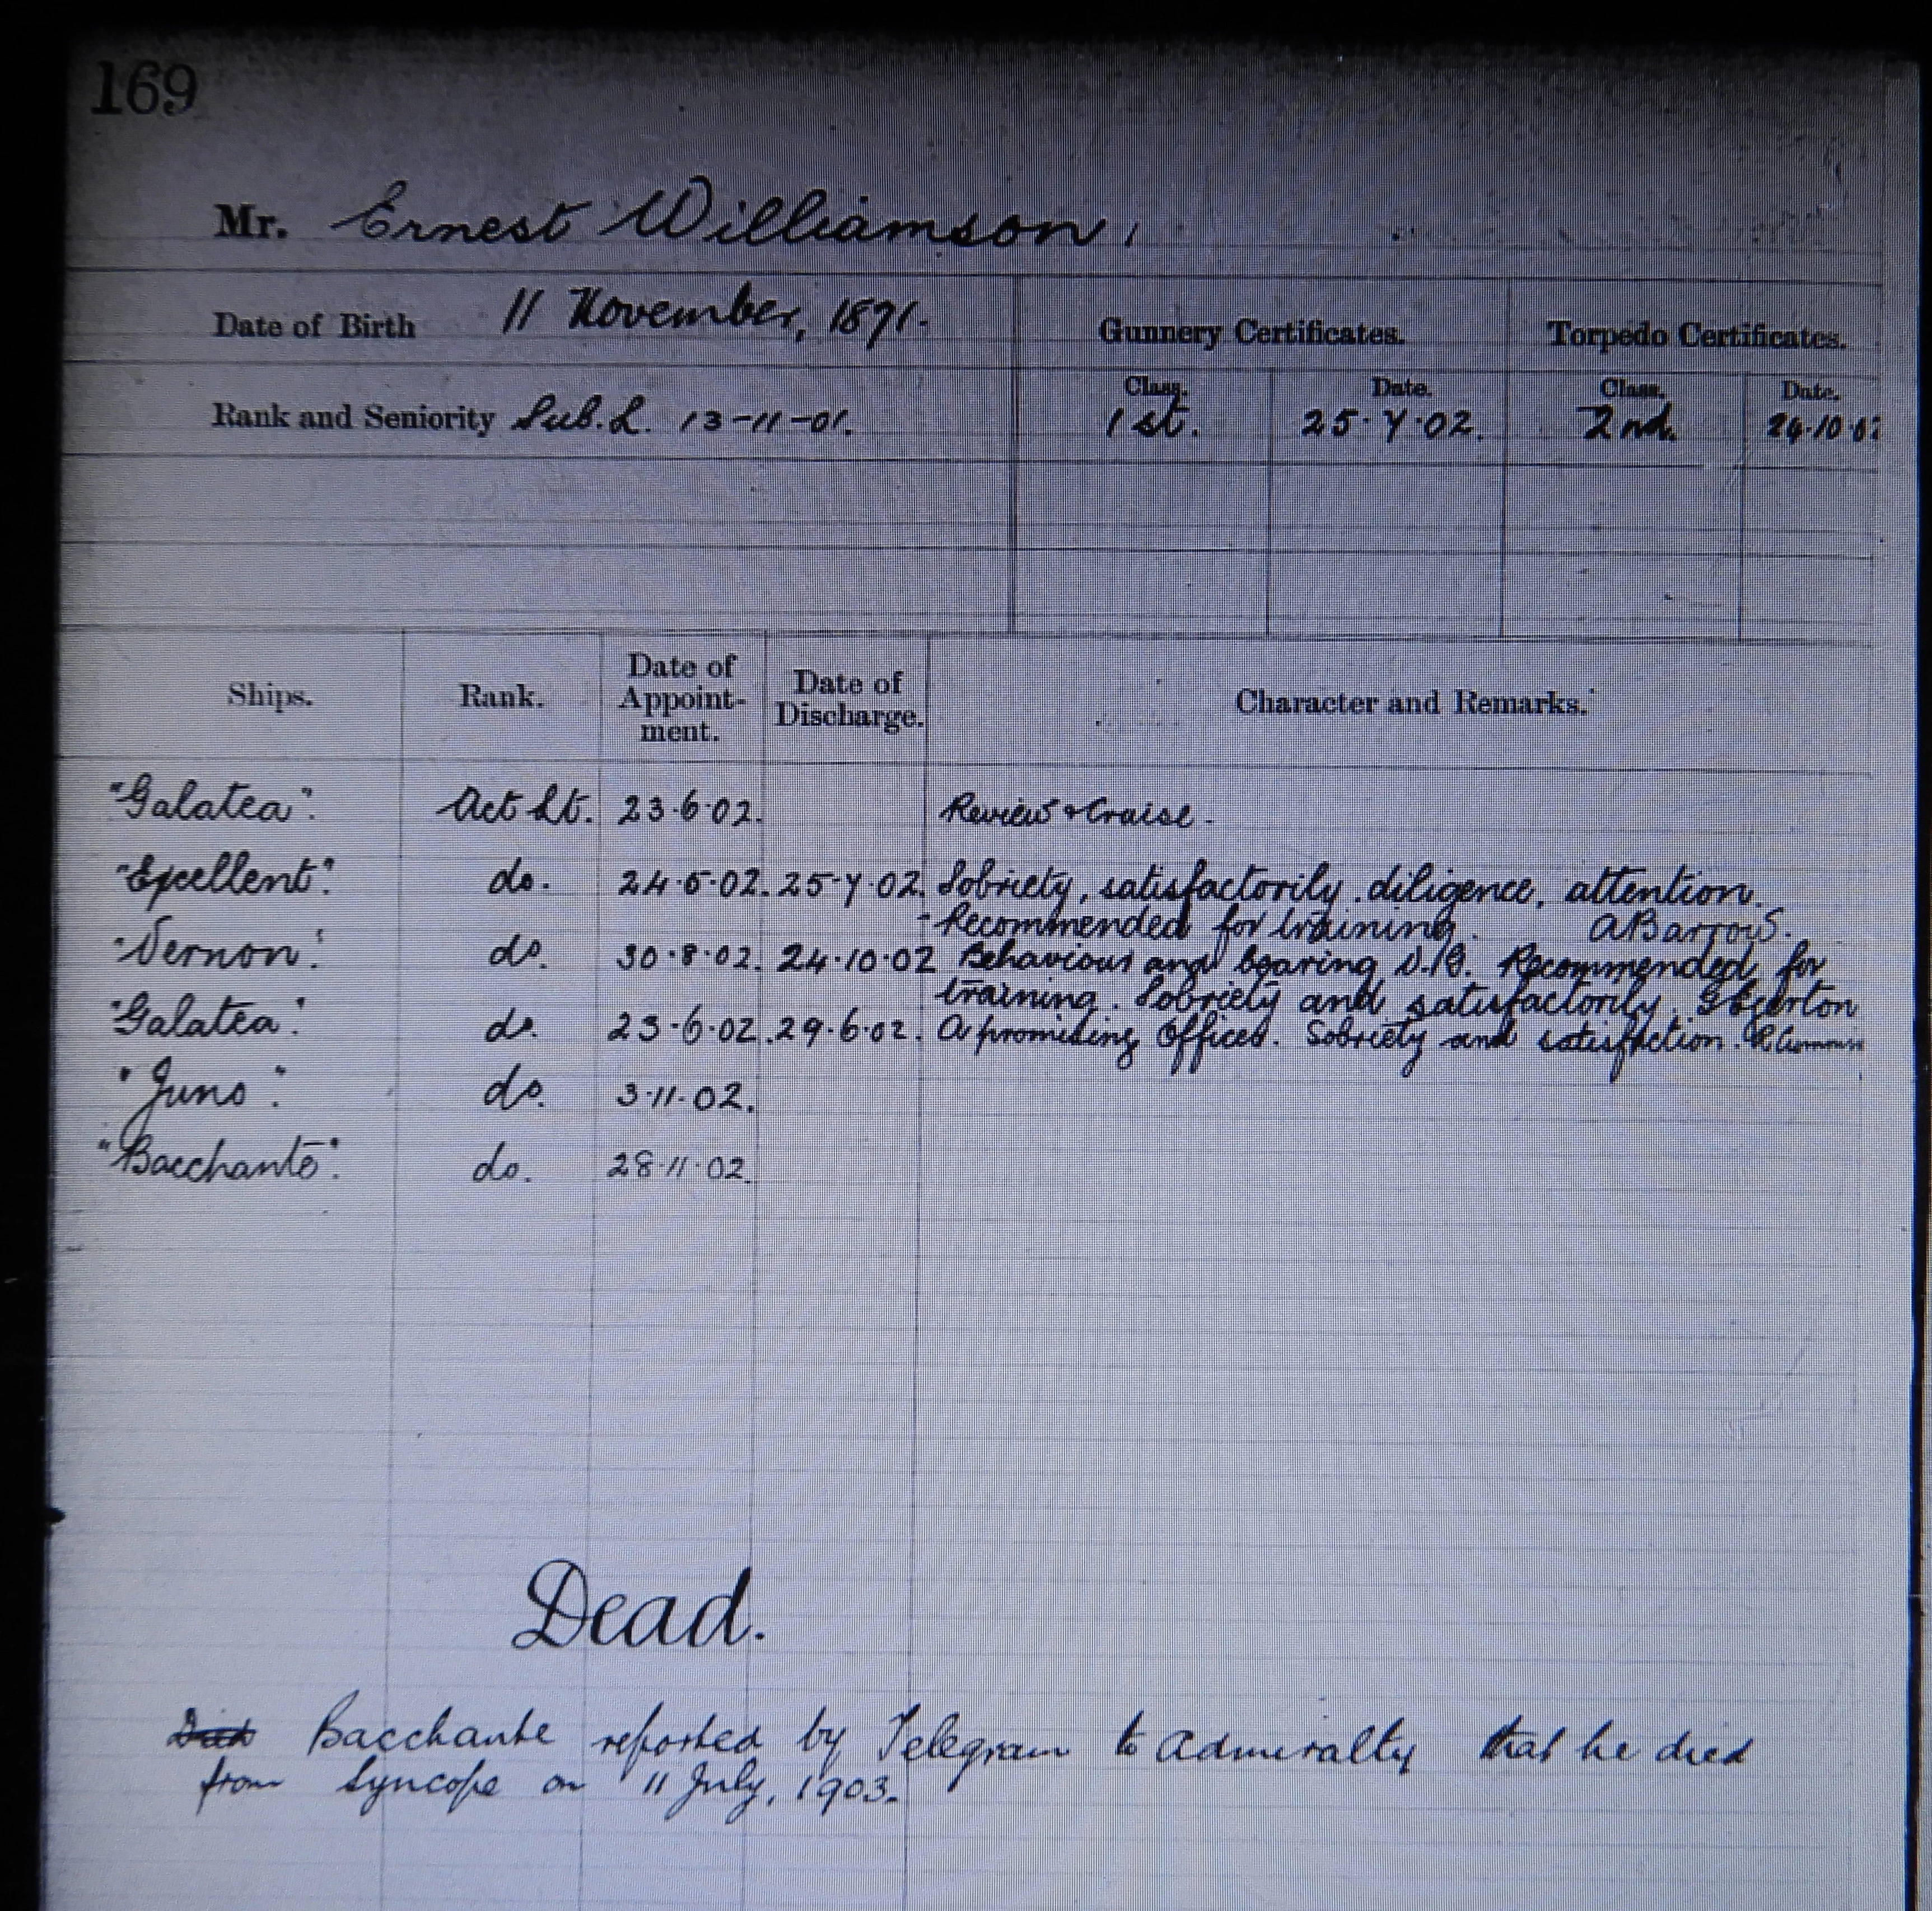 169
Mr. Ernest Williamson,
Date of Birth 11 November, 1871. Gunnery Certificates. Torpedo Certificates.
Class. Date. Class. Date.
Rank and Seniority Sub. L. 13-11-01. 1st. 25.7.02. 2nd. 24.10.02
Ships. Rank. Date of Appoint-ment. Date of Discharge. Character and Remarks.
"Galatea". Act Lt. 23.6.02. Review & Cruise.
"Excellent". do. 24.5.02. 25.7.02. Sobriety, satisfactorily. diligence, attention.
Recommended for training. A Barrow S.
"Vernon". do. 30.8.02. 24.10.02 Behaviour and bearing V.G. Recommended for
training. Sobriety and satisfactorily. G Egerton
"Galatea". do. 23-6-02. 29.6.02. A promising Officer. Sobriety and satisfaction.
"Juno". do. 3.11.02.
"Bacchante". do. 28.11.02.
Dead.
Died Bacchante reported by Telegram to Admiralty that he died
from Syncope on 11 July, 1903.